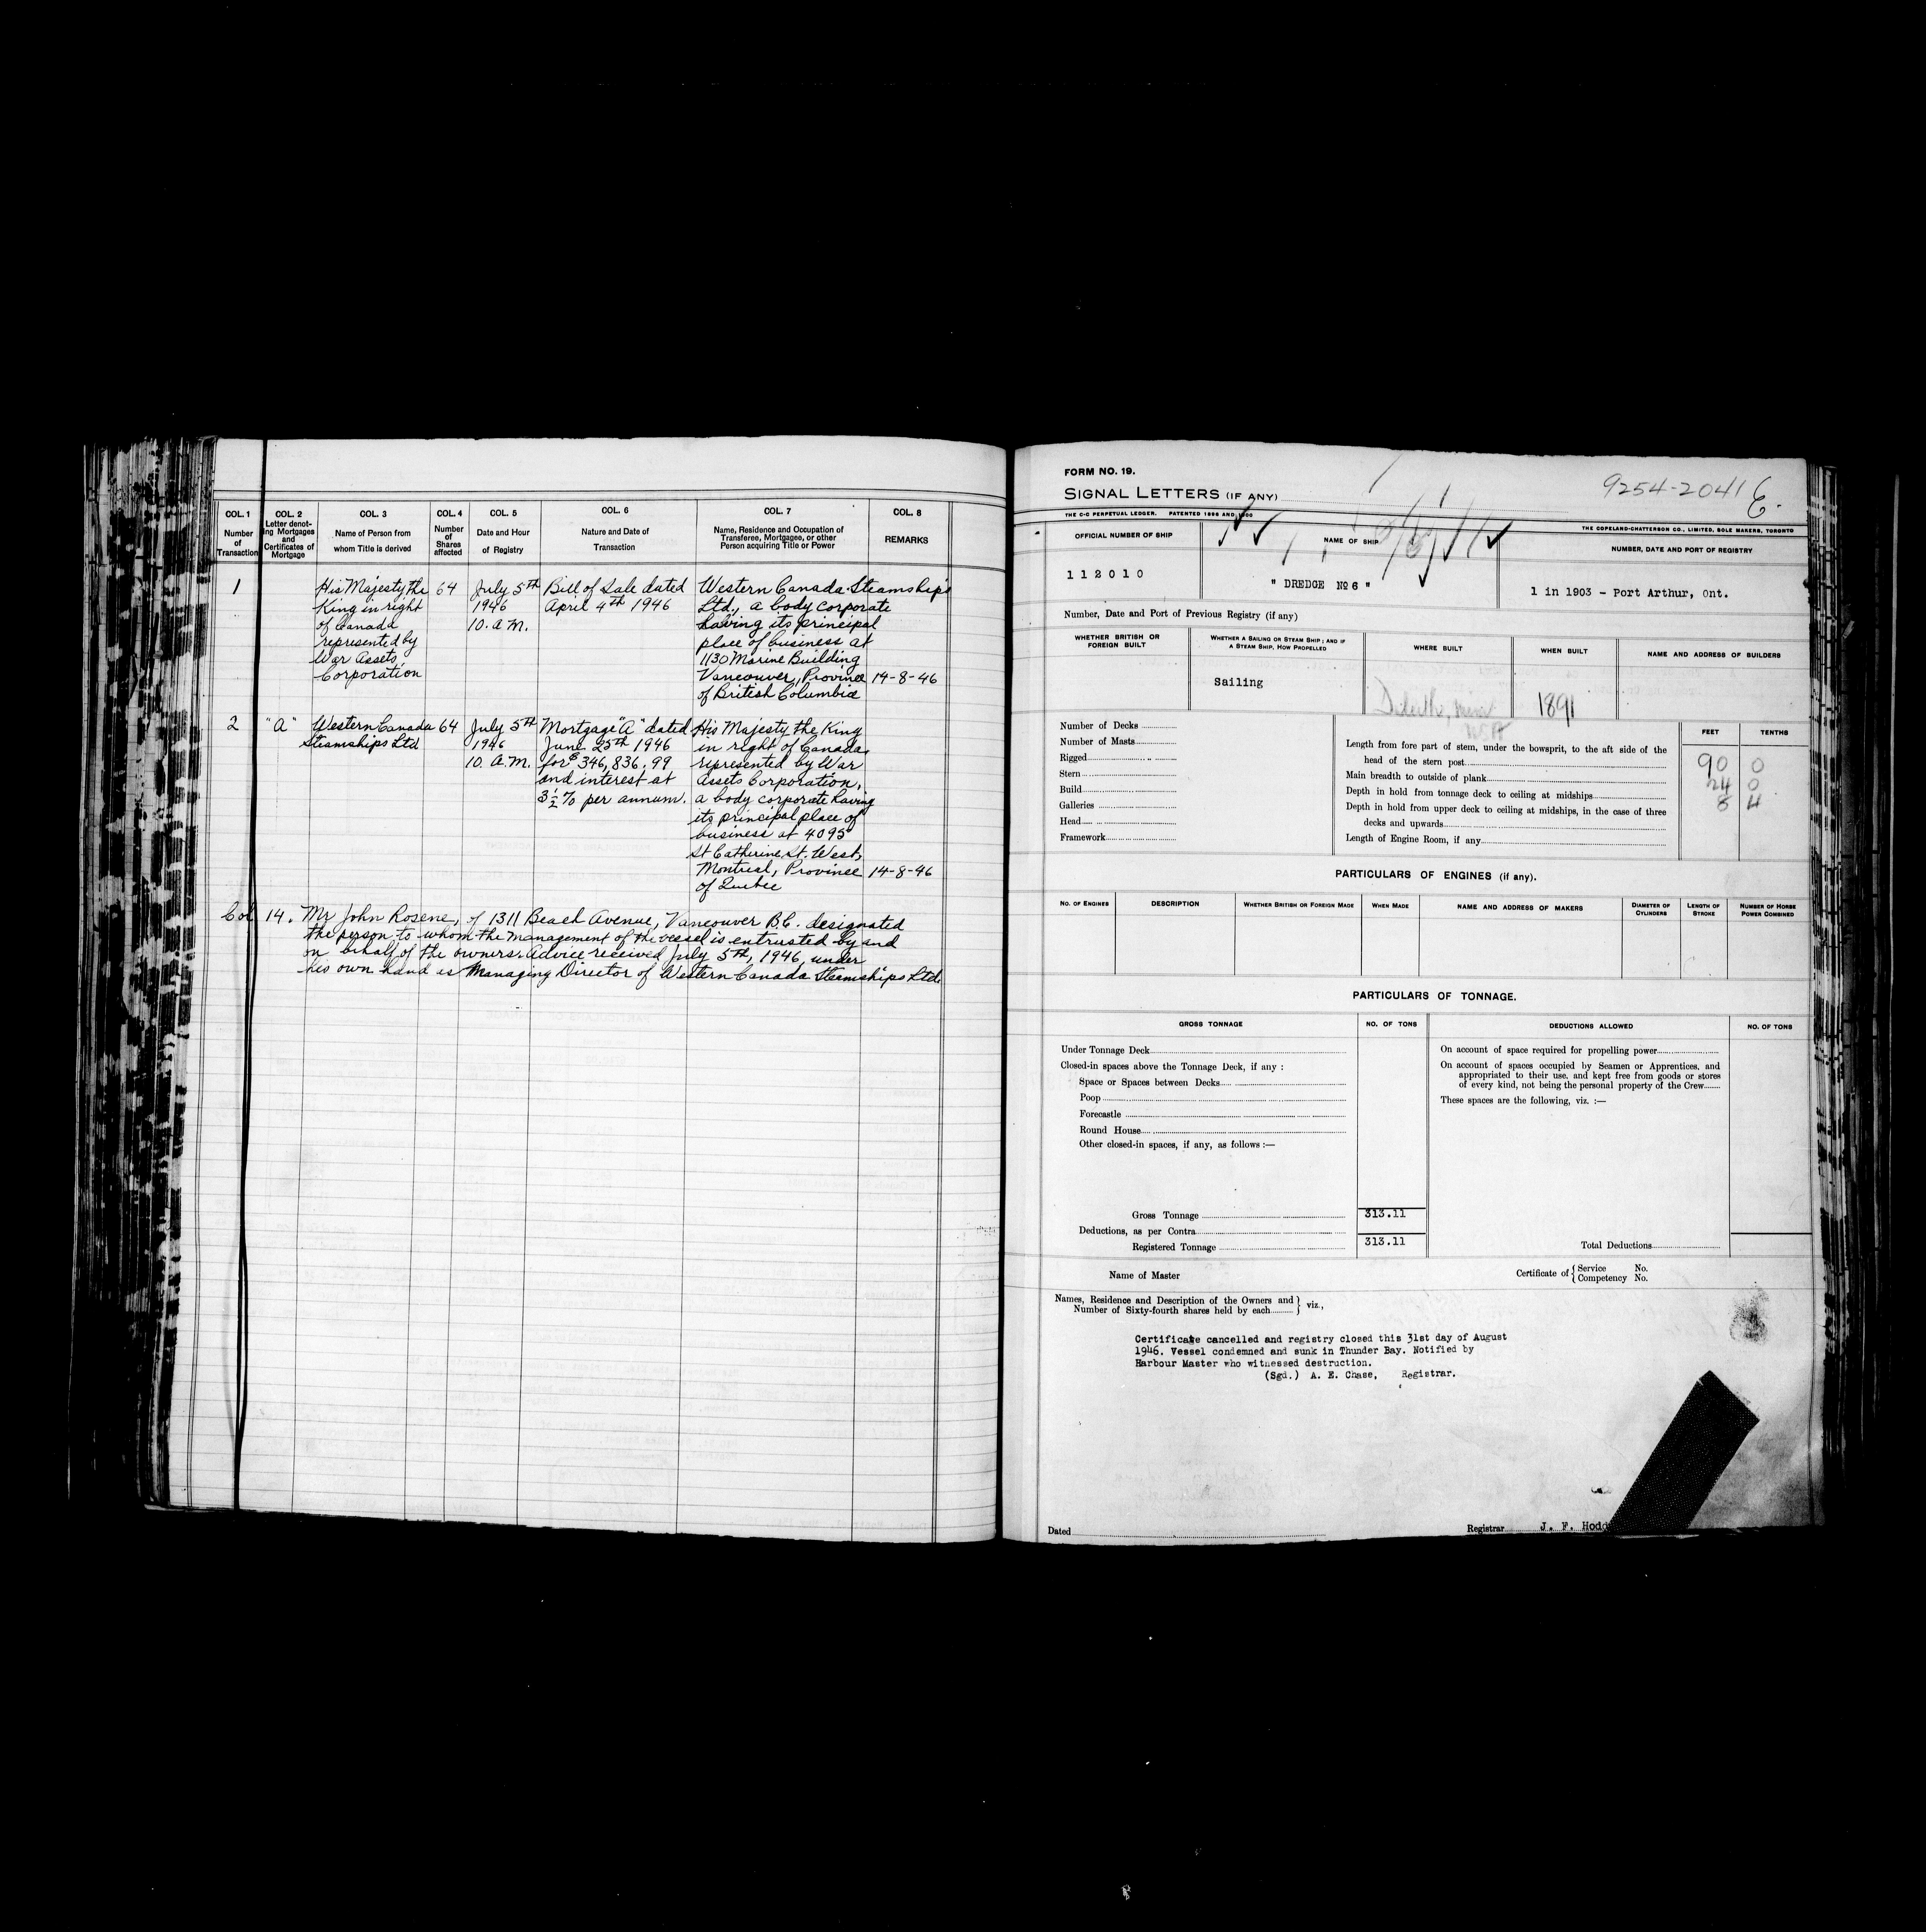 COL. 1 COL. 2 COL. 3 COL. 4 COL. 5 COL. 6 COL. 7 COL. 8
Number of Transaction
Letter denoting Mortgages and Certificates of Mortgage
Name of Person from whom Title is derived
Number of Shares affected
Date and Hour of Registry
Nature and Date of Transaction
Name, Residence and Occupation of Transferee, Mortgagee, or other Person acquiring Title or Power
REMARKS
1
His Majesty the
King in right
of Canada
represented by
War Assets
Corporation
64
July 5th
1946
10. A.M.
Bill of Sale dated
April 4th 1946
Western Canada Steamships
Ltd., a body corporate
having its principal
place of business at
1130 Marine Building
Vancouver, Province
of British Columbia
14-8-46
2
"A"
Western Canada
Steamships Ltd
64
July 5th
1946
10. A.M.
Mortgage "A" dated
June 25th 1946
for $346,836.99
and interest at
3½% per annum.
His Majesty the King
in right of Canada
represented by War
Assets Corporation,
a body corporate having
its principal place of
business at 4095
St Catherine St. West,
Montreal, Province
of Quebec
14-8-46
Col 14. Mr John Rosene, of 1311 Beach Avenue, Vancouver B.C. designated
the person to whom the management of the vessel is entrusted by and
on behalf of the owners. Advice received July 5th, 1946, under
his own hand as Managing Director of Western Canada Steamships Ltd.
FORM NO. 19.
9254-2041
SIGNAL LETTERS (IF ANY)
THE C-C PERPETUAL LEDGER. PATENTED 1896 AND 1900
THE COPELAND-CHATTERSON CO., LIMITED, SOLE MAKERS, TORONTO
OFFICIAL NUMBER OF SHIP
NAME OF SHIP
NUMBER, DATE AND PORT OF REGISTRY
112010
" DREDGE No 6 "
1 in 1903 - Port Arthur, Ont.
Number, Date and Port of Previous Registry (if any)
WHETHER BRITISH OR FOREIGN BUILT
WHETHER A SAILING OR STEAM SHIP; AND IF A STEAM SHIP, HOW PROPELLED
WHERE BUILT
WHEN BUILT
NAME AND ADDRESS OF BUILDERS
Sailing
1891
Number of Decks
Number of Masts
Rigged
Stern
Build
Galleries
Head
Framework
FEET TENTHS
Length from fore part of stem, under the bowsprit, to the aft side of the
head of the stern post 90 0
Main breadth to outside of plank 24 0
Depth in hold from tonnage deck to ceiling at midships 8 4
Depth in hold from upper deck to ceiling at midships, in the case of three
decks and upwards
Length of Engine Room, if any
PARTICULARS OF ENGINES (if any).
NO. OF ENGINES
DESCRIPTION
WHETHER BRITISH OR FOREIGN MADE
WHEN MADE
NAME AND ADDRESS OF MAKERS
DIAMETER OF CYLINDERS
LENGTH OF STROKE
NUMBER OF HORSE POWER COMBINED
PARTICULARS OF TONNAGE.
GROSS TONNAGE
NO. OF TONS
DEDUCTIONS ALLOWED
NO. OF TONS
Under Tonnage Deck
Closed-in spaces above the Tonnage Deck, if any :
Space or Spaces between Decks
Poop
Forecastle
Round House
Other closed-in spaces, if any, as follows :—
On account of space required for propelling power
On account of spaces occupied by Seamen or Apprentices, and
appropriated to their use, and kept free from goods or stores
of every kind, not being the personal property of the Crew
These spaces are the following, viz. :—
Gross Tonnage 313.11
Deductions, as per Contra
Registered Tonnage 313.11
Total Deductions
Name of Master
Certificate of { Service No.
Competency No.
Names, Residence and Description of the Owners and
Number of Sixty-fourth shares held by each } viz.,
Certificate cancelled and registry closed this 31st day of August
1946. Vessel condemned and sunk in Thunder Bay. Notified by
Harbour Master who witnessed destruction.
(Sgd.) A. E. Chase, Registrar.
Dated
Registrar J. F. Hod